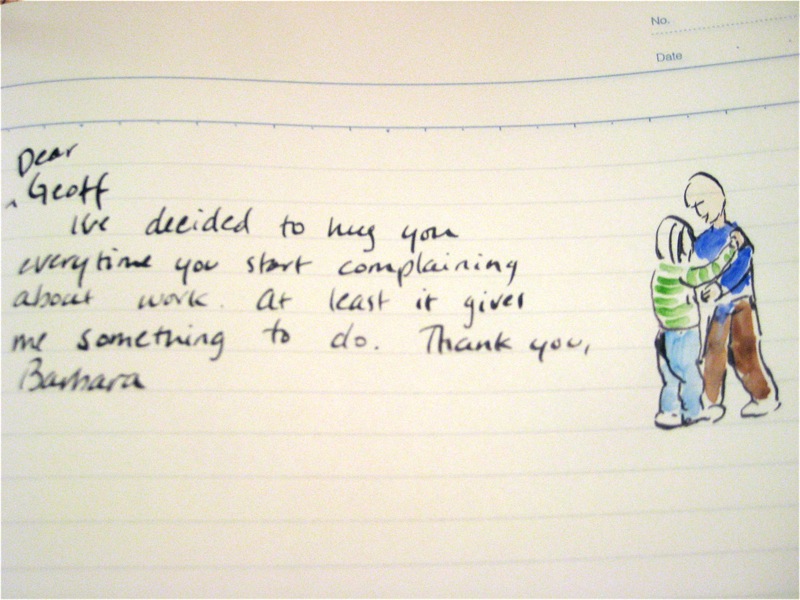 No.
Date
Dear
Geoff
I've decided to hug you
everytime you start complaining
about work. At least it gives
me something to do. Thank you,
Barbara